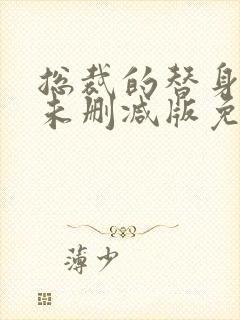 总裁的替身
未删减版免
薄少